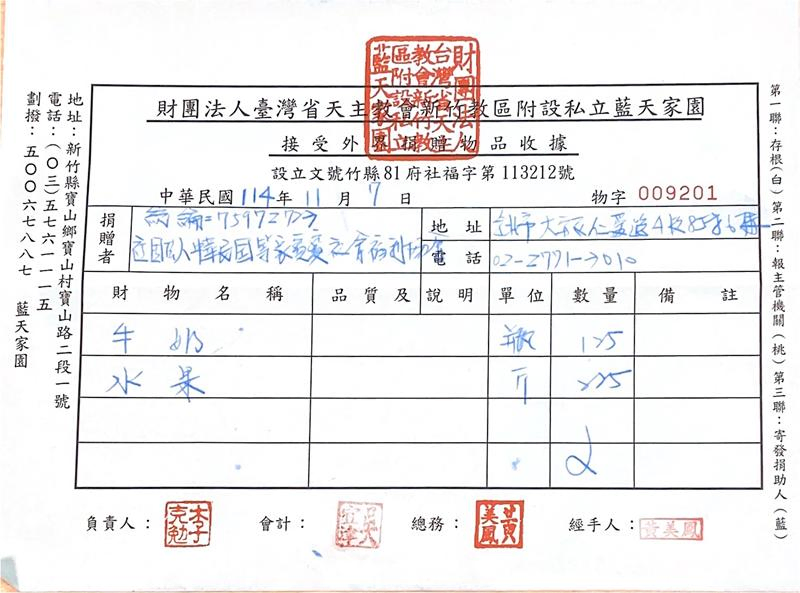 財團法人臺灣省天主教會新竹教區附設私立藍天家園
接受外界捐贈物品收據
設立文號竹縣81府社福字第113212號
中華民國 114 年 11 月 7 日
物字 009201
捐贈者
統編:75972723
地址
大安區仁愛路4段85號6樓
電話
02-2771-7010
財物名稱 品質及說明 單位 數量 備註
牛奶 瓶 125
水果 斤 225
負責人: 會計: 總務: 經手人:
黃美鳳
黃美鳳
財團法人
台灣省天主
教會新竹教
區附設私立
藍天家園
地址:新竹縣寶山鄉寶山村寶山路二段一號
電話:(〇三)五七六一一一五
劃撥:五〇〇六七八八七 藍天家園
第一聯:存根(白)第二聯:報主管機關(桃)第三聯:寄發捐助人(藍)